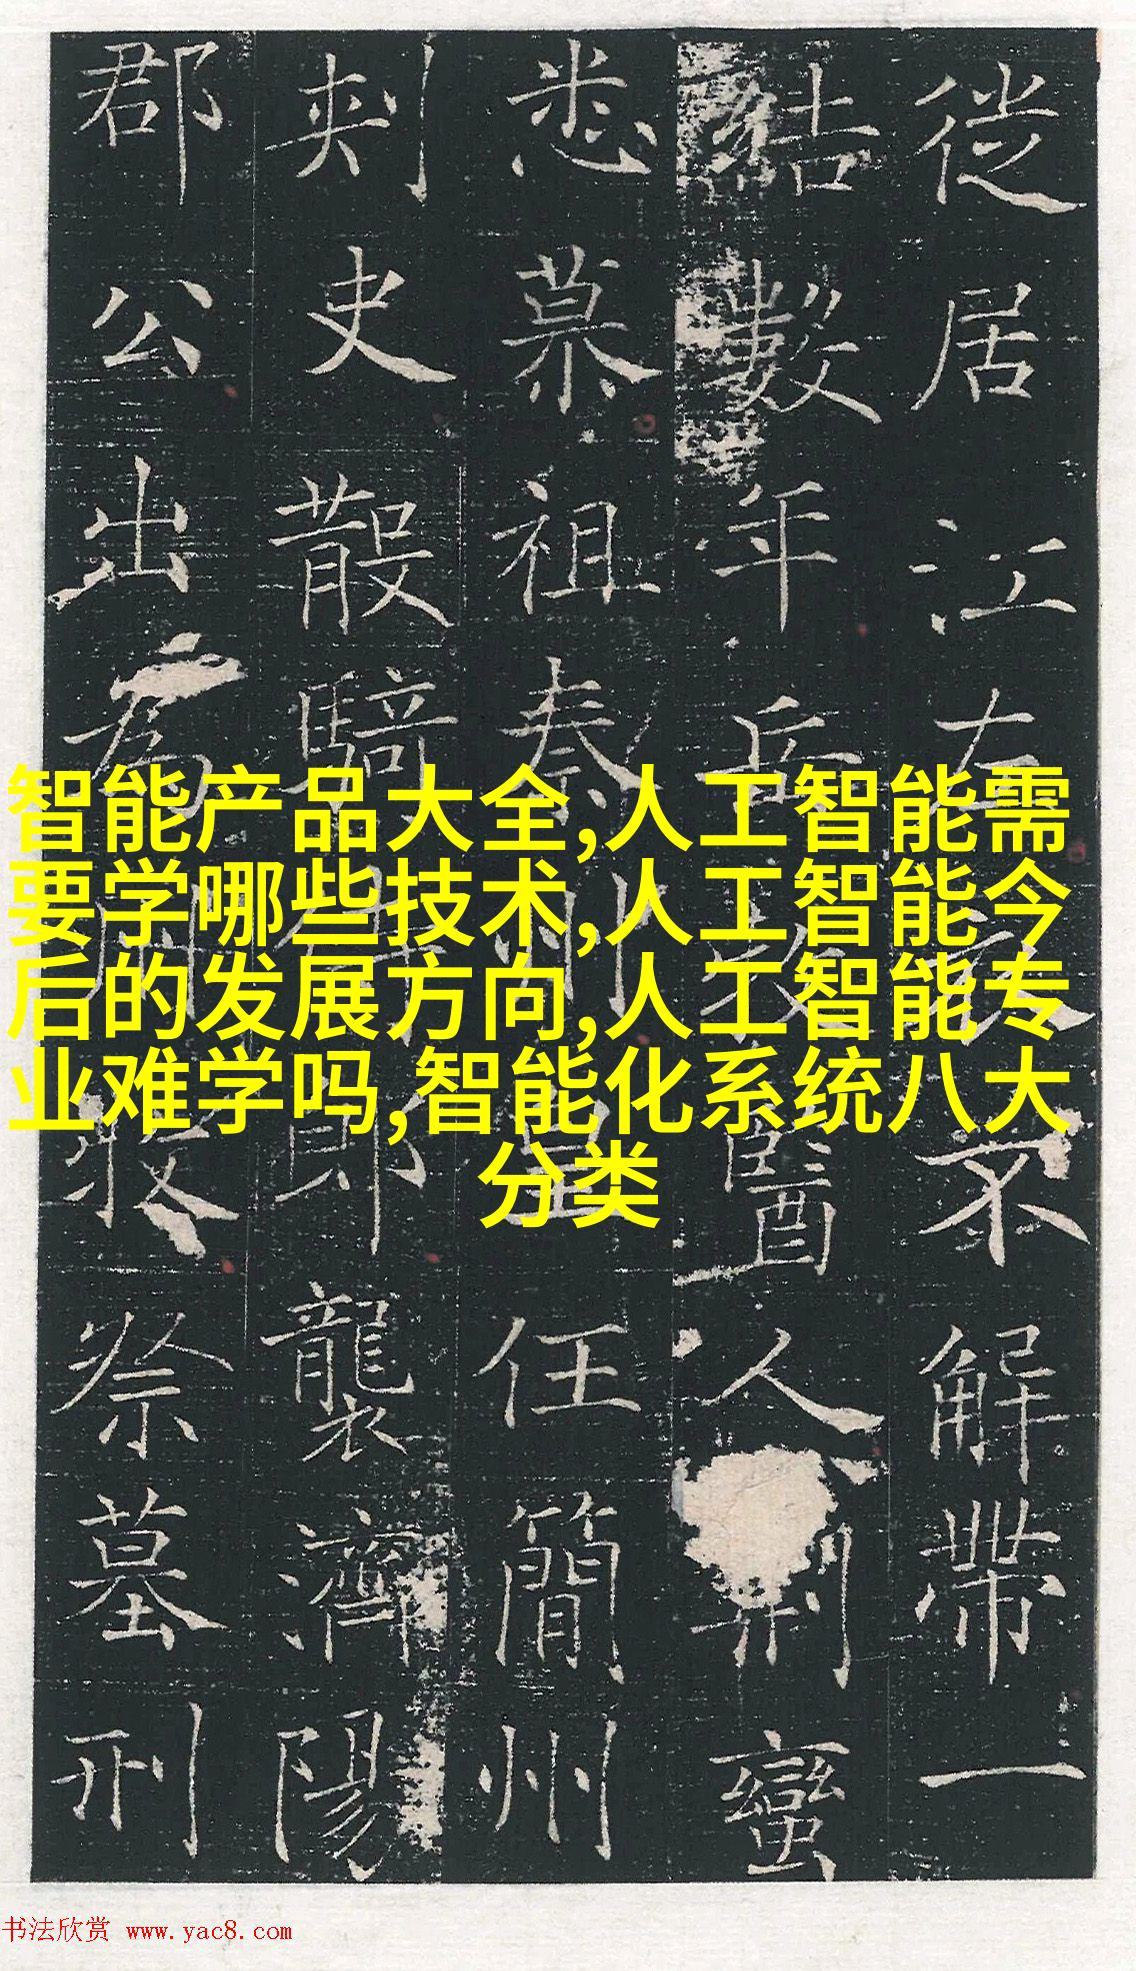 徙居江左不解帶一
數年醫人蠻
悉慕祖任簡州
刺史散騎郎襲濟陽
郡公出為祭墓刑
智能产品大全,人工智能需
要学哪些技术,人工智能今
后的发展方向,人工智能专
业难学吗,智能化系统八大
分类
书法欣赏 www.yac8.com